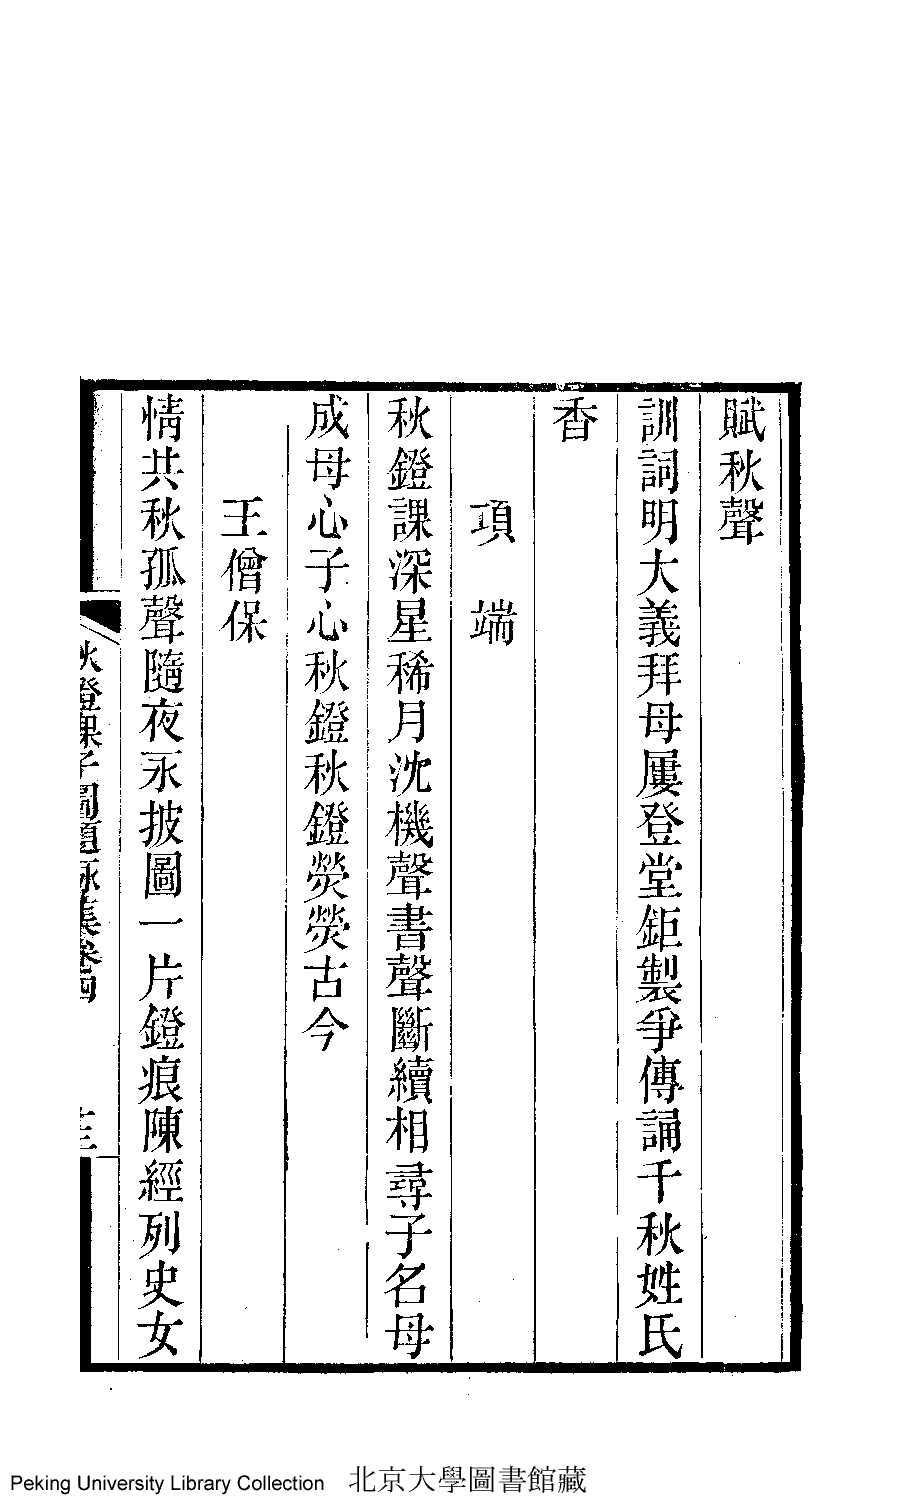 賦秋聲
訓詞明大義拜母屢登堂鉅製爭傳誦千秋姓氏
香
項端
秋鐙課深星稀月沈機聲書聲斷續相尋子名母
成母心子心秋鐙秋鐙熒熒古今
王僧保
情共秋孤聲隨夜永披圖一片鐙痕陳經列史女
秋鐙課子圖題詠集卷四
十三
Peking University Library Collection 北京大學圖書館藏